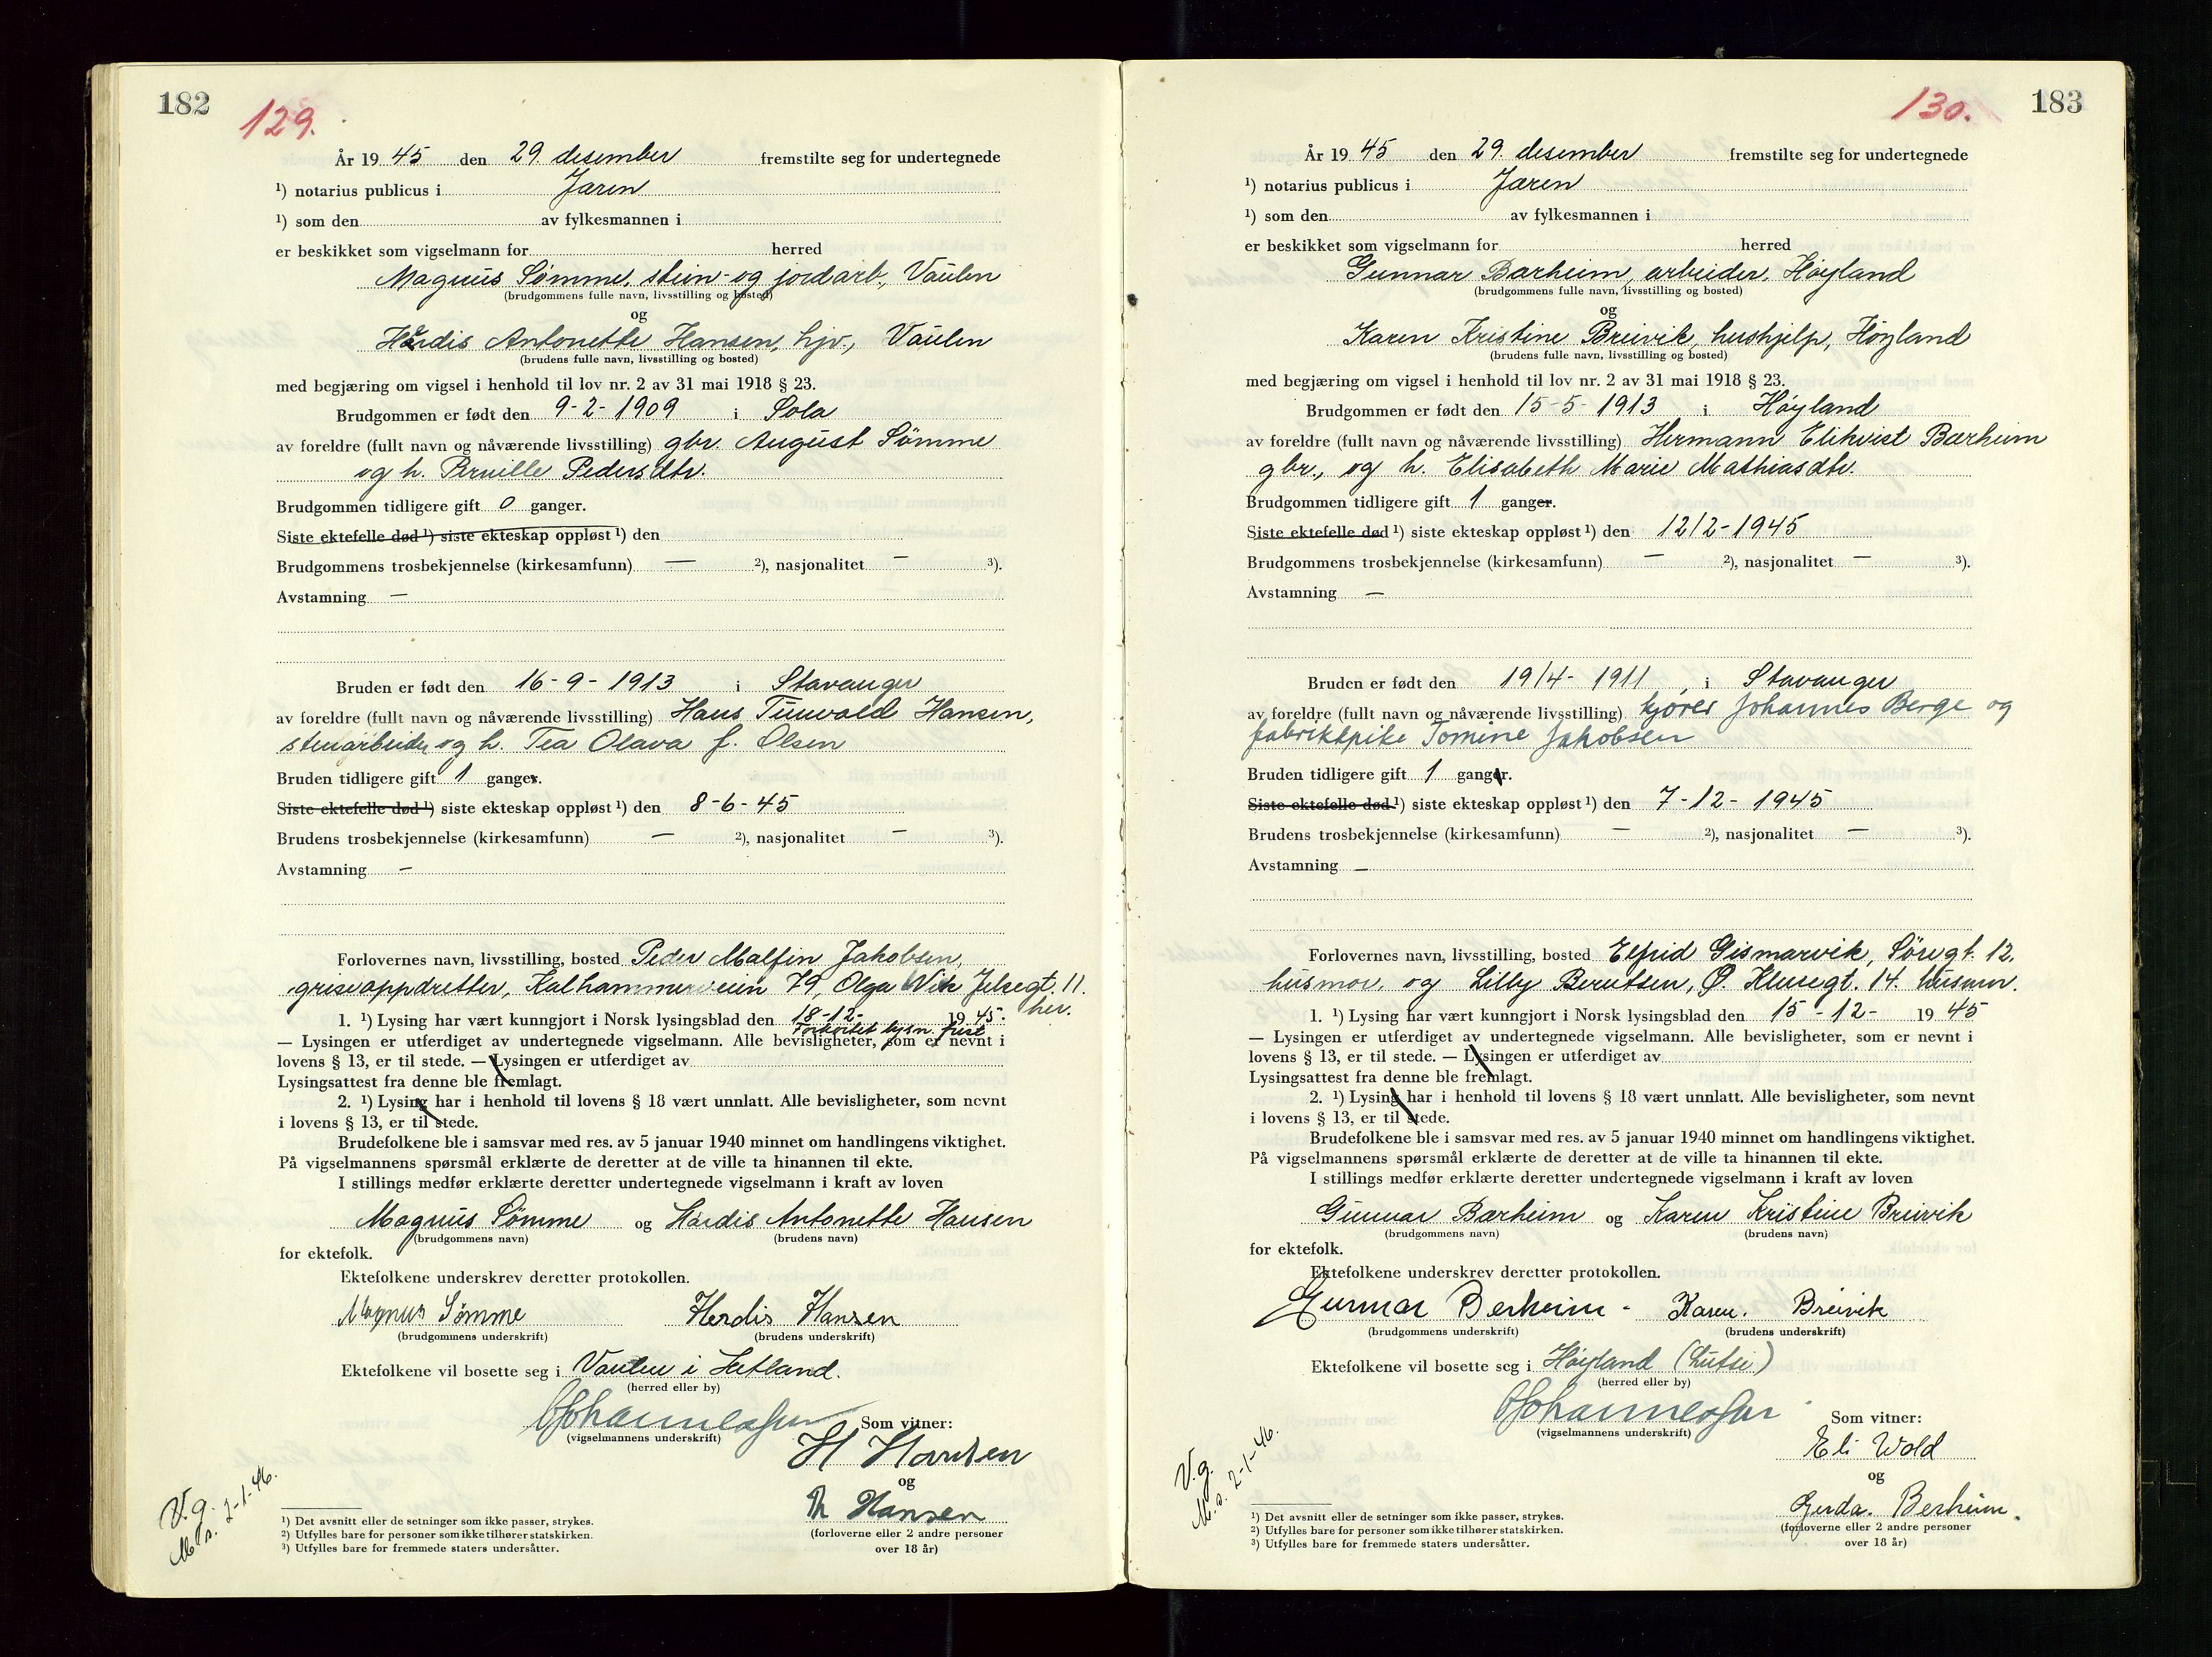 182
129.
År 19 45 den 29. desember fremstilte seg for undertegnede
¹) notarius publicus i Jæren
¹) som den av fylkesmannen i
er beskikket som vigselmann for herred
Magnus Sømme, stein- og jordarb., Vaulen
(brudgommens fulle navn, livsstilling og bosted)
og
Herdis Antonette Hansen, hjv., Vaulen
(brudens fulle navn, livsstilling og bosted)
med begjæring om vigsel i henhold til lov nr. 2 av 31 mai 1918 § 23.
Brudgommen er født den 9-2-1909 i Sola
av foreldre (fullt navn og nåværende livsstilling) gbr. August Sømme
og h. Pernille Pedersdtr.
Brudgommen tidligere gift 0 ganger.
Siste ektefelle død ¹) siste ekteskap oppløst ¹) den
Brudgommens trosbekjennelse (kirkesamfunn) — ²), nasjonalitet — ³).
Avstamning —
Bruden er født den 16-9-1913 i Stavanger
av foreldre (fullt navn og nåværende livsstilling) Hans Tunvald Hansen,
stenarbeider og h. Tea Olava f. Olsen
Bruden tidligere gift 1 ganger.
Siste ektefelle død ¹) siste ekteskap oppløst ¹) den 8-6-45
Brudens trosbekjennelse (kirkesamfunn) — ²), nasjonalitet — ³).
Avstamning —
Forlovernes navn, livsstilling, bosted Peder Malfin Jakobsen,
griseoppdretter, Kalhammerveien 79, Olga Vik Jelsegt. 11.
her.
1. ¹) Lysing har vært kunngjort i Norsk lysingsblad den 18-12- 19 45.
Forkortet lysn. frist
— Lysingen er utferdiget av undertegnede vigselmann. Alle bevisligheter, som er nevnt i
lovens § 13, er til stede. — Lysingen er utferdiget av
Lysingsattest fra denne ble fremlagt.
2. ¹) Lysing har i henhold til lovens § 18 vært unnlatt. Alle bevisligheter, som nevnt
i lovens § 13, er til stede.
Brudefolkene ble i samsvar med res. av 5 januar 1940 minnet om handlingens viktighet.
På vigselmannens spørsmål erklærte de deretter at de ville ta hinannen til ekte.
I stillings medfør erklærte deretter undertegnede vigselmann i kraft av loven
Magnus Sømme og Herdis Antonette Hansen
(brudgommens navn) (brudens navn)
for ektefolk.
Ektefolkene underskrev deretter protokollen.
Magnus Sømme Herdis Hansen
(brudgommens underskrift) (brudens underskrift)
Ektefolkene vil bosette seg i Vaulen i Hetland.
(herred eller by)
Som vitner:
(vigselmannens underskrift)
H Hansen
og
Th Hansen
(forloverne eller 2 andre personer
over 18 år)
V.g.
M.s. 2-1-46.
¹) Det avsnitt eller de setninger som ikke passer, strykes.
²) Utfylles bare for personer som ikke tilhører statskirken.
³) Utfylles bare for fremmede staters undersåtter.
130.
183
År 19 45 den 29. desember fremstilte seg for undertegnede
¹) notarius publicus i Jæren
¹) som den av fylkesmannen i
er beskikket som vigselmann for herred
Gunnar Bærheim, arbeider, Høyland
(brudgommens fulle navn, livsstilling og bosted)
og
Karen Kristine Breivik, hushjelp, Høyland
(brudens fulle navn, livsstilling og bosted)
med begjæring om vigsel i henhold til lov nr. 2 av 31 mai 1918 § 23.
Brudgommen er født den 15-5-1913 i Høyland
av foreldre (fullt navn og nåværende livsstilling) Hermann Elikvist Bærheim
gbr., og h. Elisabeth Marie Mathiasdtr.
Brudgommen tidligere gift 1 ganger.
Siste ektefelle død ¹) siste ekteskap oppløst ¹) den 12/2-1945
Brudgommens trosbekjennelse (kirkesamfunn) — ²), nasjonalitet — ³).
Avstamning —
Bruden er født den 19/4-1911, i Stavanger
av foreldre (fullt navn og nåværende livsstilling) kjører Johannes Berge og
fabrikkpike Tomine Jakobsen
Bruden tidligere gift 1 ganger.
Siste ektefelle død ¹) siste ekteskap oppløst ¹) den 7-12-1945
Brudens trosbekjennelse (kirkesamfunn) — ²), nasjonalitet — ³).
Avstamning —
Forlovernes navn, livsstilling, bosted Elfrid Gismarvik, Søregt. 12.
husmor, og Lilly Berntsen, Ø. Klevegt. 14. husmor.
1. ¹) Lysing har vært kunngjort i Norsk lysingsblad den 15-12- 19 45
— Lysingen er utferdiget av undertegnede vigselmann. Alle bevisligheter, som er nevnt i
lovens § 13, er til stede. — Lysingen er utferdiget av
Lysingsattest fra denne ble fremlagt.
2. ¹) Lysing har i henhold til lovens § 18 vært unnlatt. Alle bevisligheter, som nevnt
i lovens § 13, er til stede.
Brudefolkene ble i samsvar med res. av 5 januar 1940 minnet om handlingens viktighet.
På vigselmannens spørsmål erklærte de deretter at de ville ta hinannen til ekte.
I stillings medfør erklærte deretter undertegnede vigselmann i kraft av loven
Gunnar Bærheim og Karen Kristine Breivik
(brudgommens navn) (brudens navn)
for ektefolk.
Ektefolkene underskrev deretter protokollen.
Gunnar Berheim - Karen. Breivik
(brudgommens underskrift) (brudens underskrift)
Ektefolkene vil bosette seg i Høyland (Lutsi)
(herred eller by)
Som vitner:
(vigselmannens underskrift)
Eli Wold
og
Gerda. Berheim.
(forloverne eller 2 andre personer
over 18 år)
V.g.
M.s. 2-1-46.
¹) Det avsnitt eller de setninger som ikke passer, strykes.
²) Utfylles bare for personer som ikke tilhører statskirken.
³) Utfylles bare for fremmede staters undersåtter.